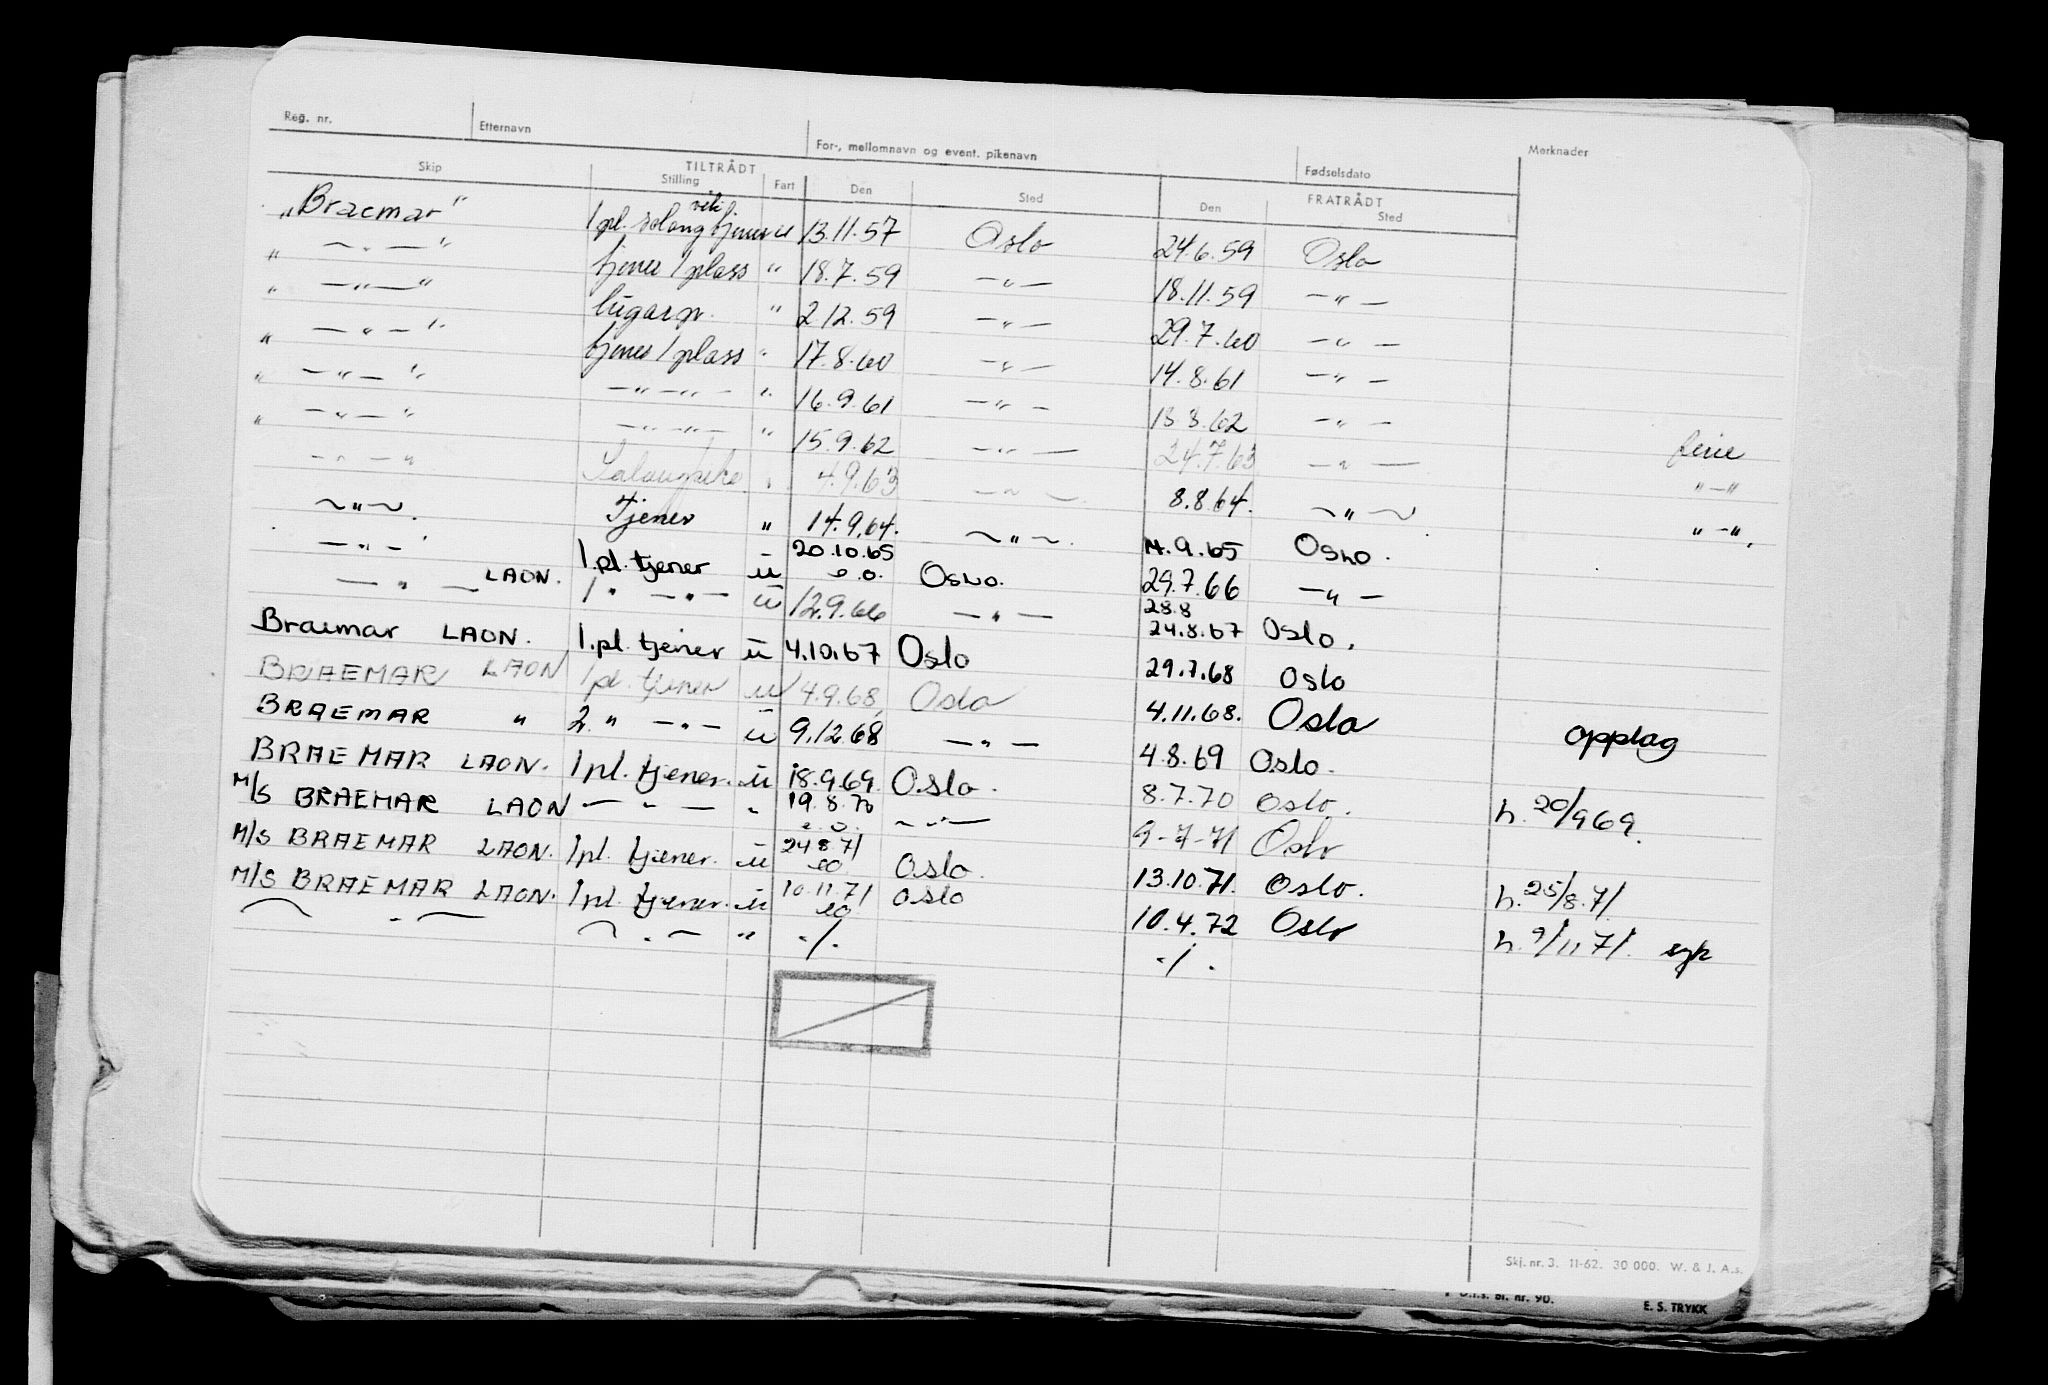 Reg. nr. Etternavn For-, mellomnavn og event. pikenavn Fødselsdato Merknader
TILTRÅDT FRATRÅDT
Skip Stilling Fart Den Sted Den Sted
"Braemar" 1 pl. salong tjener u 13.11.57 Oslo 24.6.59 Oslo
" — " — " tjener 1 plass " 18.7.59 — " — 18.11.59 — " —
" — " — " lugarp. " 2.12.59 — " — 29.7.60 — " —
" — " — " tjener 1 plass " 17.8.60 — " — 14.8.61 — " —
" — " — " — " — " — " 16.9.61 — " — 13.8.62 — " —
" — " — " — " — " — " 15.9.62 — " — 24.7.63 — " — ferie
— " — " " 4.9.63 — " — 8.8.64. — " — " — "
— " — . Tjener " 14.9.64. — " — . 14.9.65 Oslo. " — ".
— " — 1.pl. tjener u 20.10.65 e.o. Oslo. 29.7.66 — " —
— " — LAON. 1 " — " — u 12.9.66 — " — 28.8 24.8.67 Oslo.
Braemar LAON. 1.pl. tjener u 4.10.67 Oslo 29.7.68 Oslo
BRAEMAR LAON 1 pl. tjener u 4.9.68 Oslo 4.11.68. Oslo opplag
BRAEMAR " 2. " — " — u 9.12.68 — " — 4.8.69 Oslo.
BRAEMAR LAON. 1 pl. tjener. u 18.9.69. Oslo. 8.7.70 Oslo. h. 20/9 69.
M/S BRAEMAR LAON — " — " 19.8.70 e.o. — " — 9-7-71 Oslo
M/S BRAEMAR LAON. 1 pl. tjener. u 24.8.71 eo Oslo. 13.10.71. Oslo. h. 25/8.71
M/S BRAEMAR LAON. 1 pl. tjener. u 10.11.71 eo Oslo 10.4.72 Oslo h. 9/11 71. syk
— " — — " — " ./. ./.
Skj. nr. 3. 11-62. 30 000. W. & J. A.s.
nr. 90. E. S. TRYKK